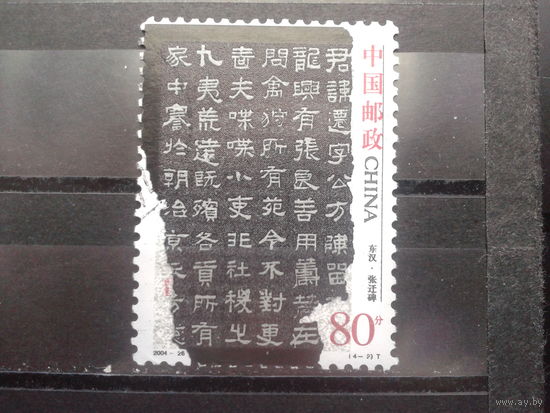 中国邮政 CHINA
东汉·张迁碑
80分
(4-2)T
2004-28
君讳迁字公方陈留
龙兴有张良善用
問禽狩所有苑令不對更
嗇夫喋喋小吏非社稷之
九夷荒遠既殯各貢所有
家中
於朝治京
www.ay.by